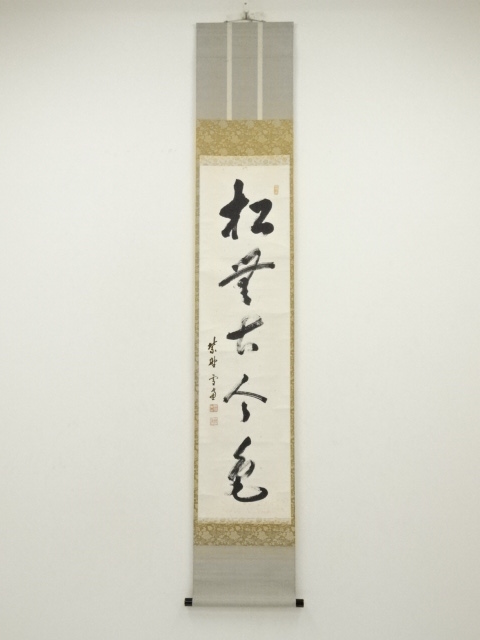 松無古今色
紫野